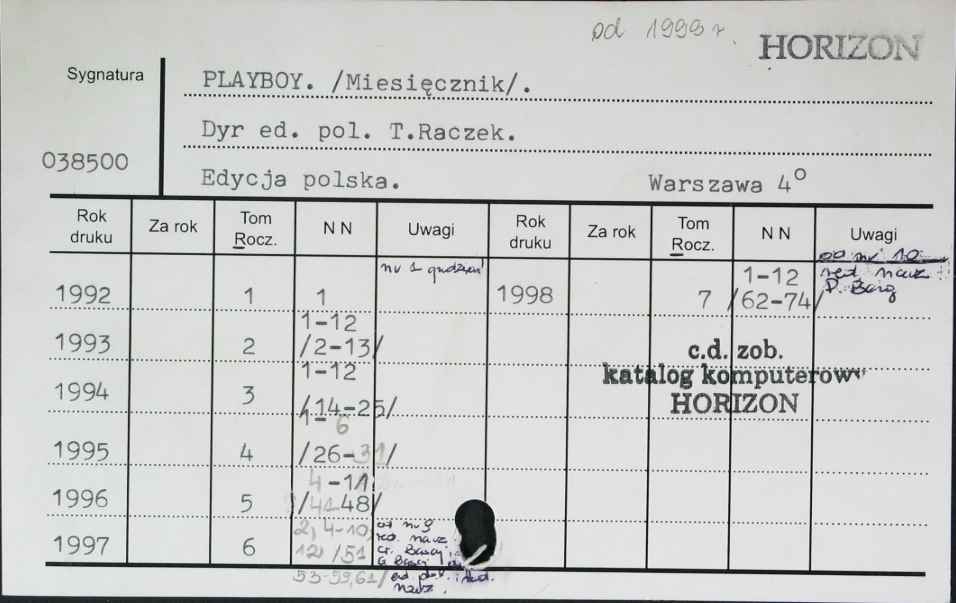 od 1999 r.
HORIZON
Sygnatura
PLAYBOY. /Miesięcznik/.
Dyr ed. pol. T.Raczek.
038500
Edycja polska. Warszawa 4°
Rok druku Za rok Tom Rocz. N N Uwagi Rok druku Za rok Tom Rocz. N N Uwagi
1992 1 1 nr 1 grudzień 1998 7 1-12 /62-74/ od nr 10 red nacz
1993 2 1-12 /2-13/
c.d. zob.
katalog komputerowy
HORIZON
1994 3 1-12 /14-25/
1995 4 1-6 /26-31/
1996 5 4-11 48/
1997 6 2, 4-10, 12 /51 od nr 9 red. nacz
53-59,61/ red. nacz.